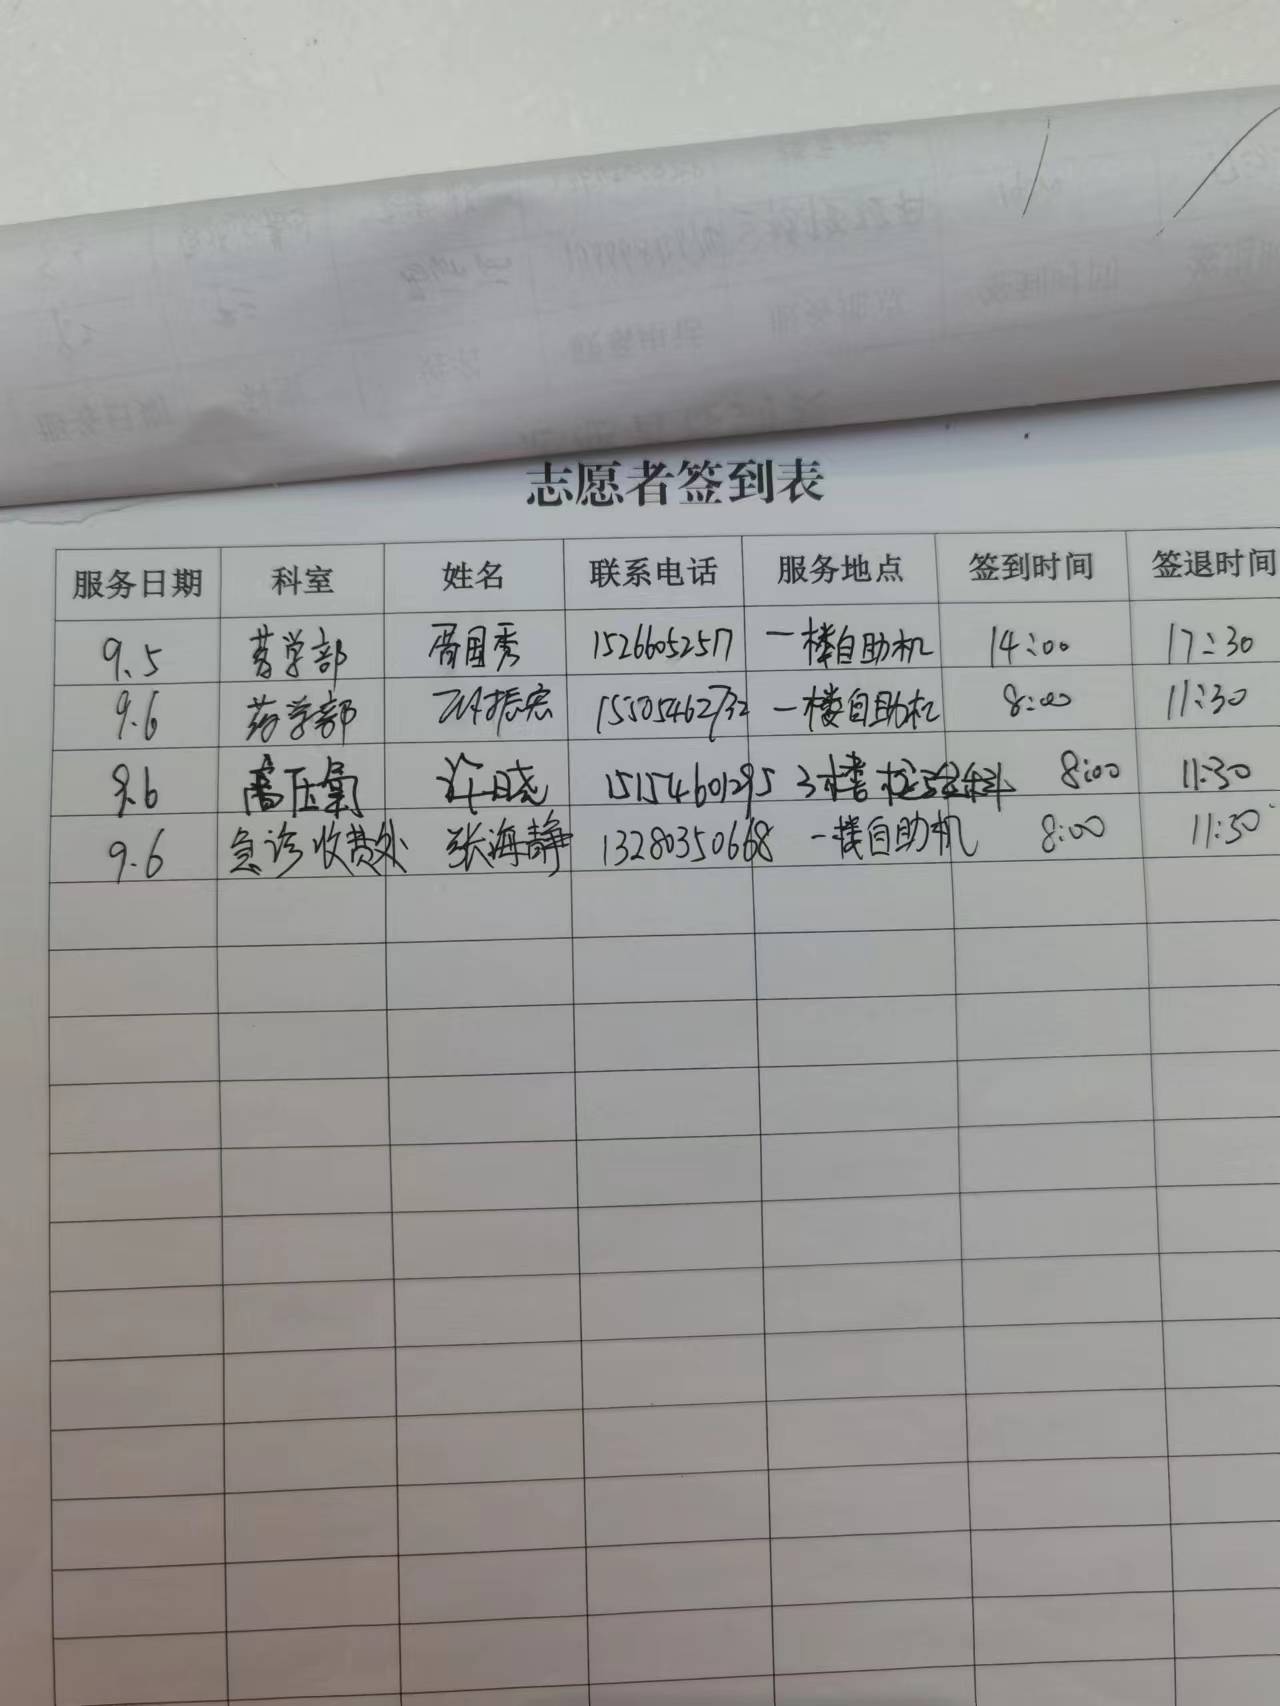 志愿者签到表
服务日期 科室 姓名 联系电话 服务地点 签到时间 签退时间
9.5 药学部 国秀 15266052517 一楼自助机 14:00 17:30
9.6 药学部 振宏 15505462732 一楼自助机 8:00 11:30
9.6 高压氧 许晓 15154601295 3楼检验科 8:00 11:30
9.6 急诊收费处 张海静 13280350668 一楼自助机 8:00 11:30